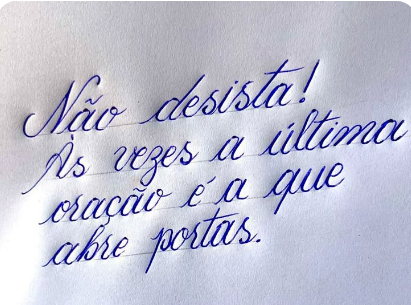 Não desista!
Às vezes a última
oração é a que
abre portas.